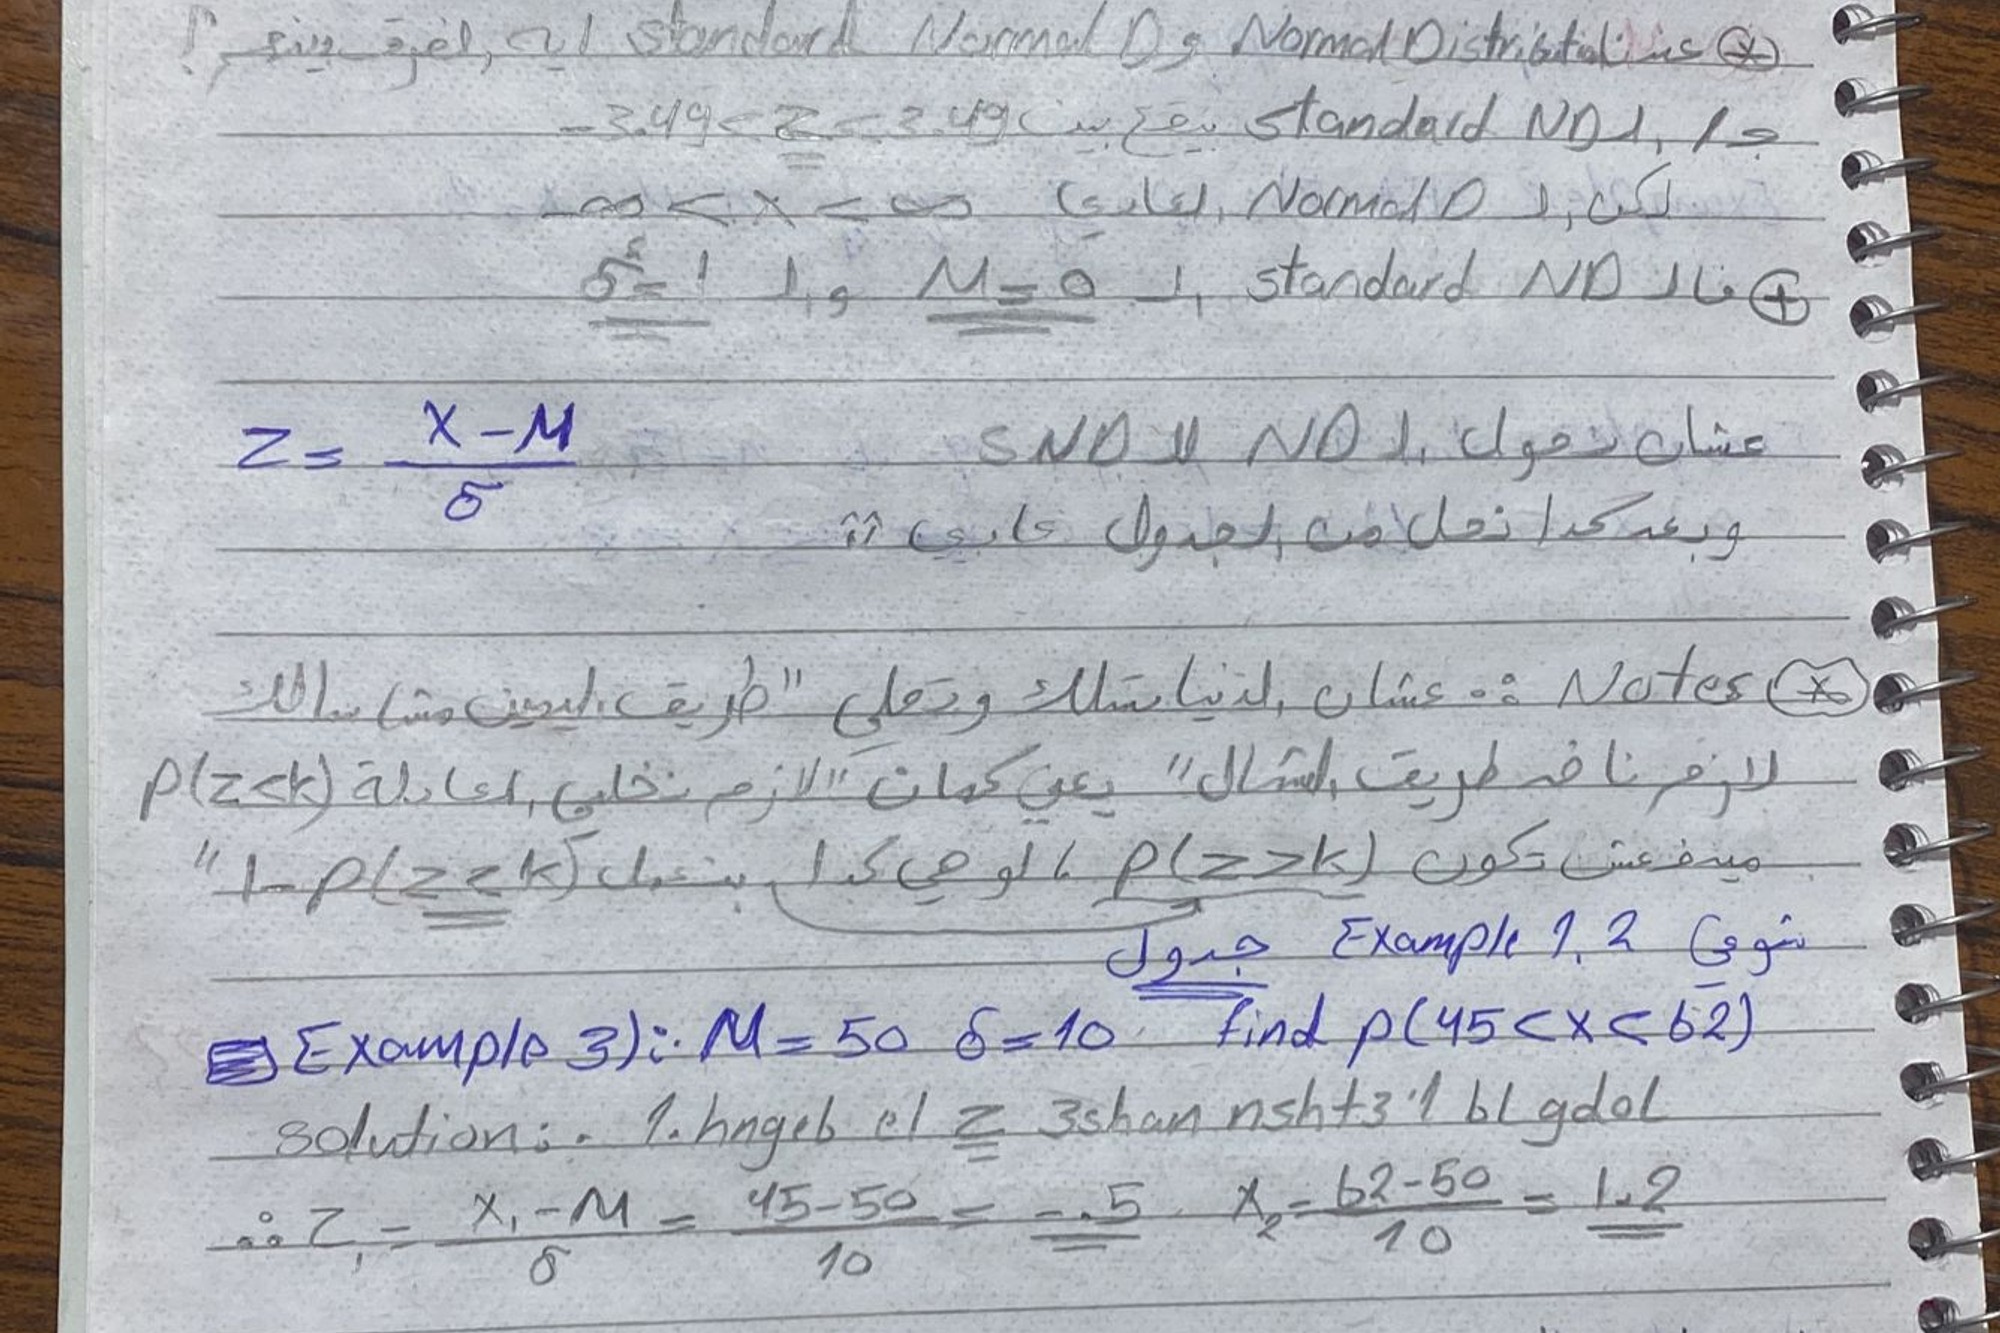 ⊛ عندنا Normal Distribution و Standard Normal D ايه الفرق بينهم؟
ج/ الـ standard ND بيقع بين -3.49<Z<3.49
لكن الـ Normal D العادي -∞<X<∞
⊕ فالـ standard ND الـ M=0 والـ δ²=1
عشان نحول الـ ND للـ SND Z= (X-M)/δ
وبعد كدا نحل من الجدول عادي
⊛ Notes :. عشان الدنيا وتحلي "طريق اليمين مشا سالك
لازم ناخد طريق الشمال" يعني كمان "لازم نخلي المعادلة P(z<k)
مينفعش تكون P(z>k) لو هي كدا بنعمل 1-P(z<k)"
شوفي Example 1,2 جدول
Example 3):. M=50 δ=10 find p(45<x<62)
solution:. 1. hngeb el Z 3shan nsht3'l bl gdol
∴ Z₁ = (X₁-M)/δ = (45-50)/10 = -.5 X₂ = (62-50)/10 = 1.2